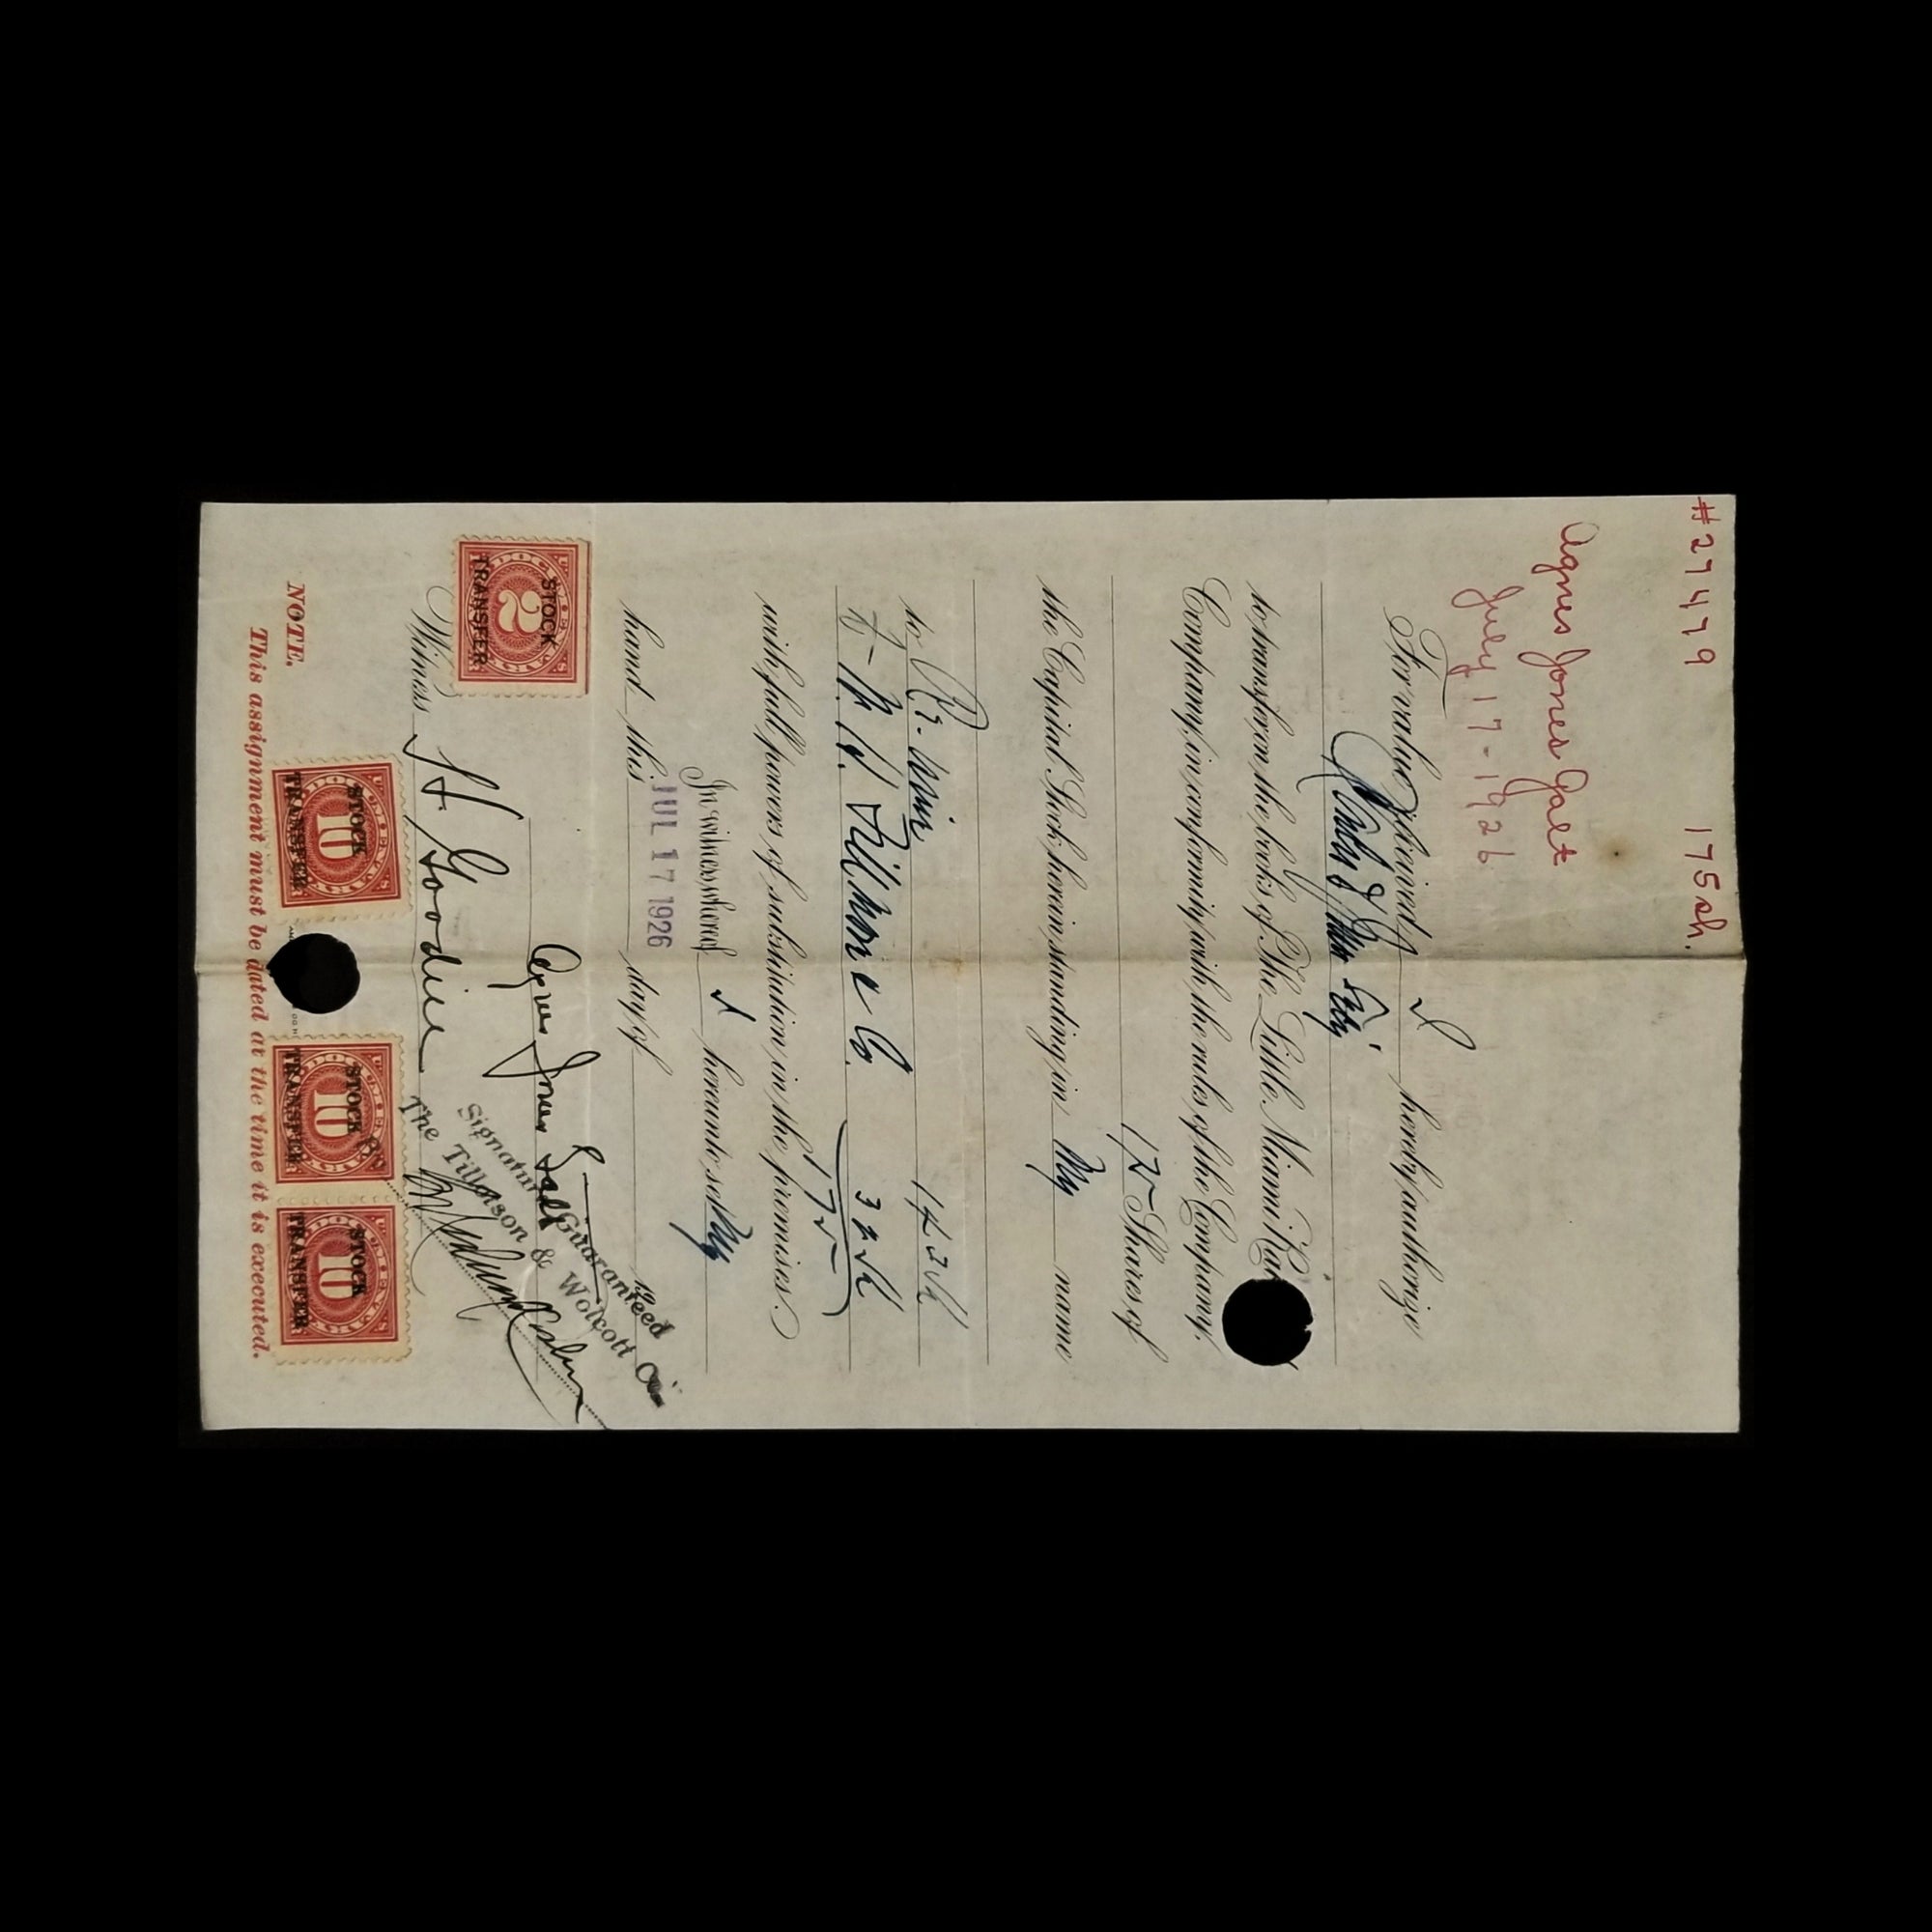 #27479 175 sh.
Agnes Jones Galt
July 17-1926
For value Received, I hereby authorize
to transfer on the books of The Little Miami
Company, in conformity with the rules of the Company,
175 Shares of
the Capital Stock herein standing in My name
to
& Co.
175
with full powers of substitution, in the premises.
In witness whereof I hereunto set My
hand this JUL 17 1926 day of 19
Agnes Jones Galt
Signature Guaranteed
The Tillotson & Wolcott Co.
Witness H. Goodie
STOCK
TRANSFER
2
STOCK
TRANSFER
10
STOCK
TRANSFER
10
STOCK
TRANSFER
10
NOTE.
This assignment must be dated at the time it is executed.